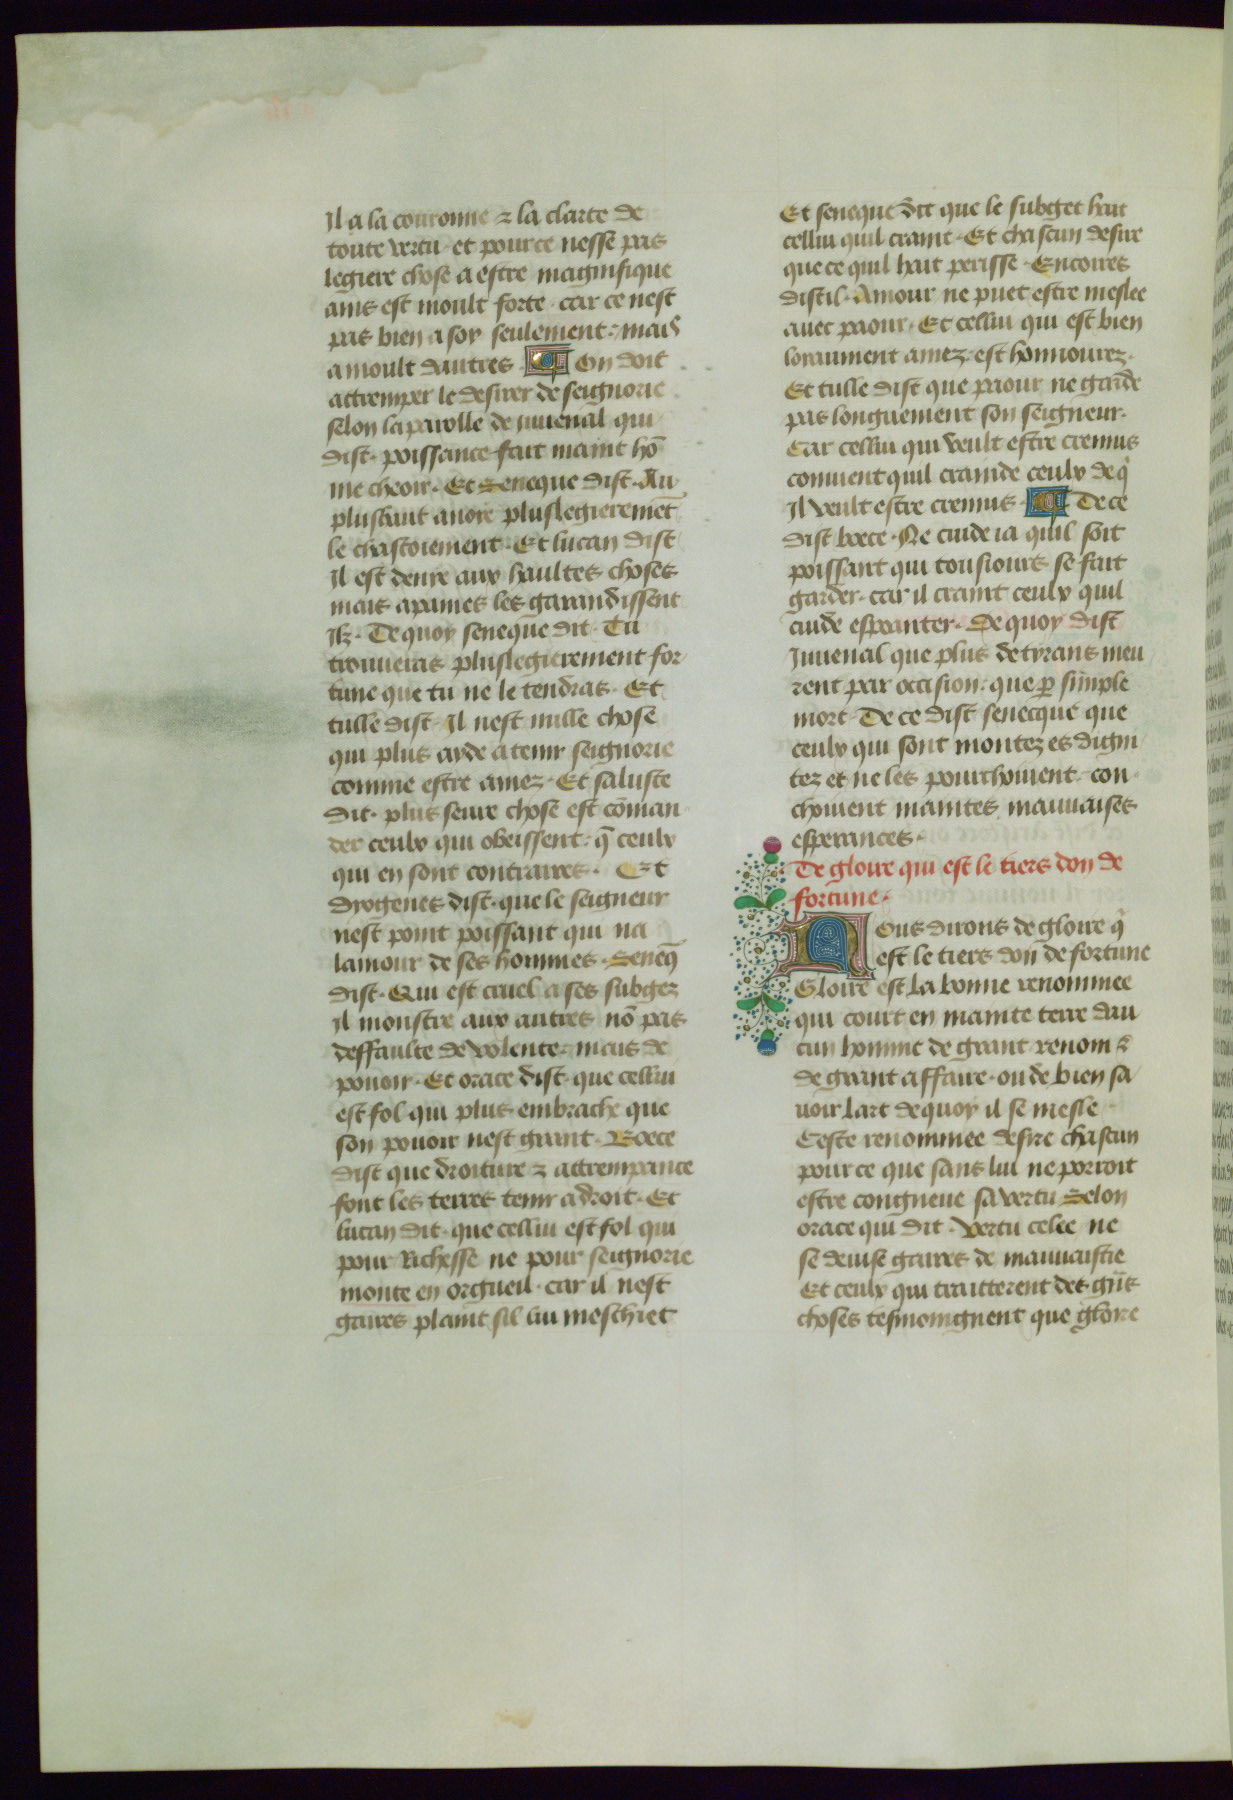 Il a la couronne & la clarte de
toute vertu · et pource nesse pas
legiere chose a estre magnifique
ains est moult forte · car ce nest
pas bien a soy seulement : mais
a moult dautres · ¶ On doit
actremper le desirer de seignorie
selon la parolle de iuuenal qui
dist · poissance fait maint hō
me cheoir · Et Seneque dist · Au
plushaut auoir pluslegieremēt
le chastoiement · Et lucan dist
Il est denre aux haultes choses
mais apaines les garandissent
Ilz · De quoy seneque dit · Tu
trouueras pluslegierement for
tune que tu ne le tendras · Et
tulle dist · Il nest nulle chose
qui plus ayde a tenir seignorie
comme estre amez · Et saluste
dit · plus seure chose est cōman
der ceulx qui obeissent : q̄ ceulx
qui en sont contraires · Et
dyogenes dist · que le seigneur
nest point poissant qui na
lamour de ses hommes · Seneq̄
dist · Qui est cruel a ses subgez
Il monstre aux autres nō pas
deffaulte de volente : mais de
pouoir · Et orace dist · que cellui
est fol qui plus embrache que
son pouoir nest grant · Boece
dist que droiture & attrempance
font les terres tenir adroit · Et
lucan dit · que cellui est fol qui
pour Richesse ne pour seignorie
monte en orgueil · car il nest
gaires plaint sil lui meschiet
Et seneque dit que le subget hait
cellui quil craint · Et chascun desire
que ce quil hait perisse · Encoires
dist il · Amour ne puet estre meslee
auec paour · Et cellui qui est bien
loraument amez · est honnourez ·
Et tulle dist que paour ne garde
pas longuement son seigneur ·
Car cellui qui veult estre cremus
conuient quil crainde ceulx de q̄
Il veult estre cremus · ¶ De ce
dist boece · Ne cuide ia quil soit
poissant qui tousiours se fait
garder · car il craint ceulx quil
cuide espoanter · De quoy dist
Iuuenal que plus de tyrans meu
rent par occision : que ꝑ simple
mort · De ce dist senecque que
ceulx qui sont montez es digni
tez et ne les pourchoiuent · con
choiuent maintes mauuaises
esperances ·
De gloire qui est le tiers don de
fortune ·
Nous dirons de gloire q̄
est le tiers don de fortune
Gloire est la bonne renommee
qui court en mainte terre dau
cun homme de grant renom &
de grant affaire · ou de bien sa
uoir lart de quoy il se mesle
Ceste renommee desire chascun
pour ce que sans lui ne porroit
estre congneue sa vertu Selon
orace qui dit · Vertu celee ne
se deuise gaires de mauuaistie
Et ceulx qui traitterent des grās
choses tesmoingnent que gloire